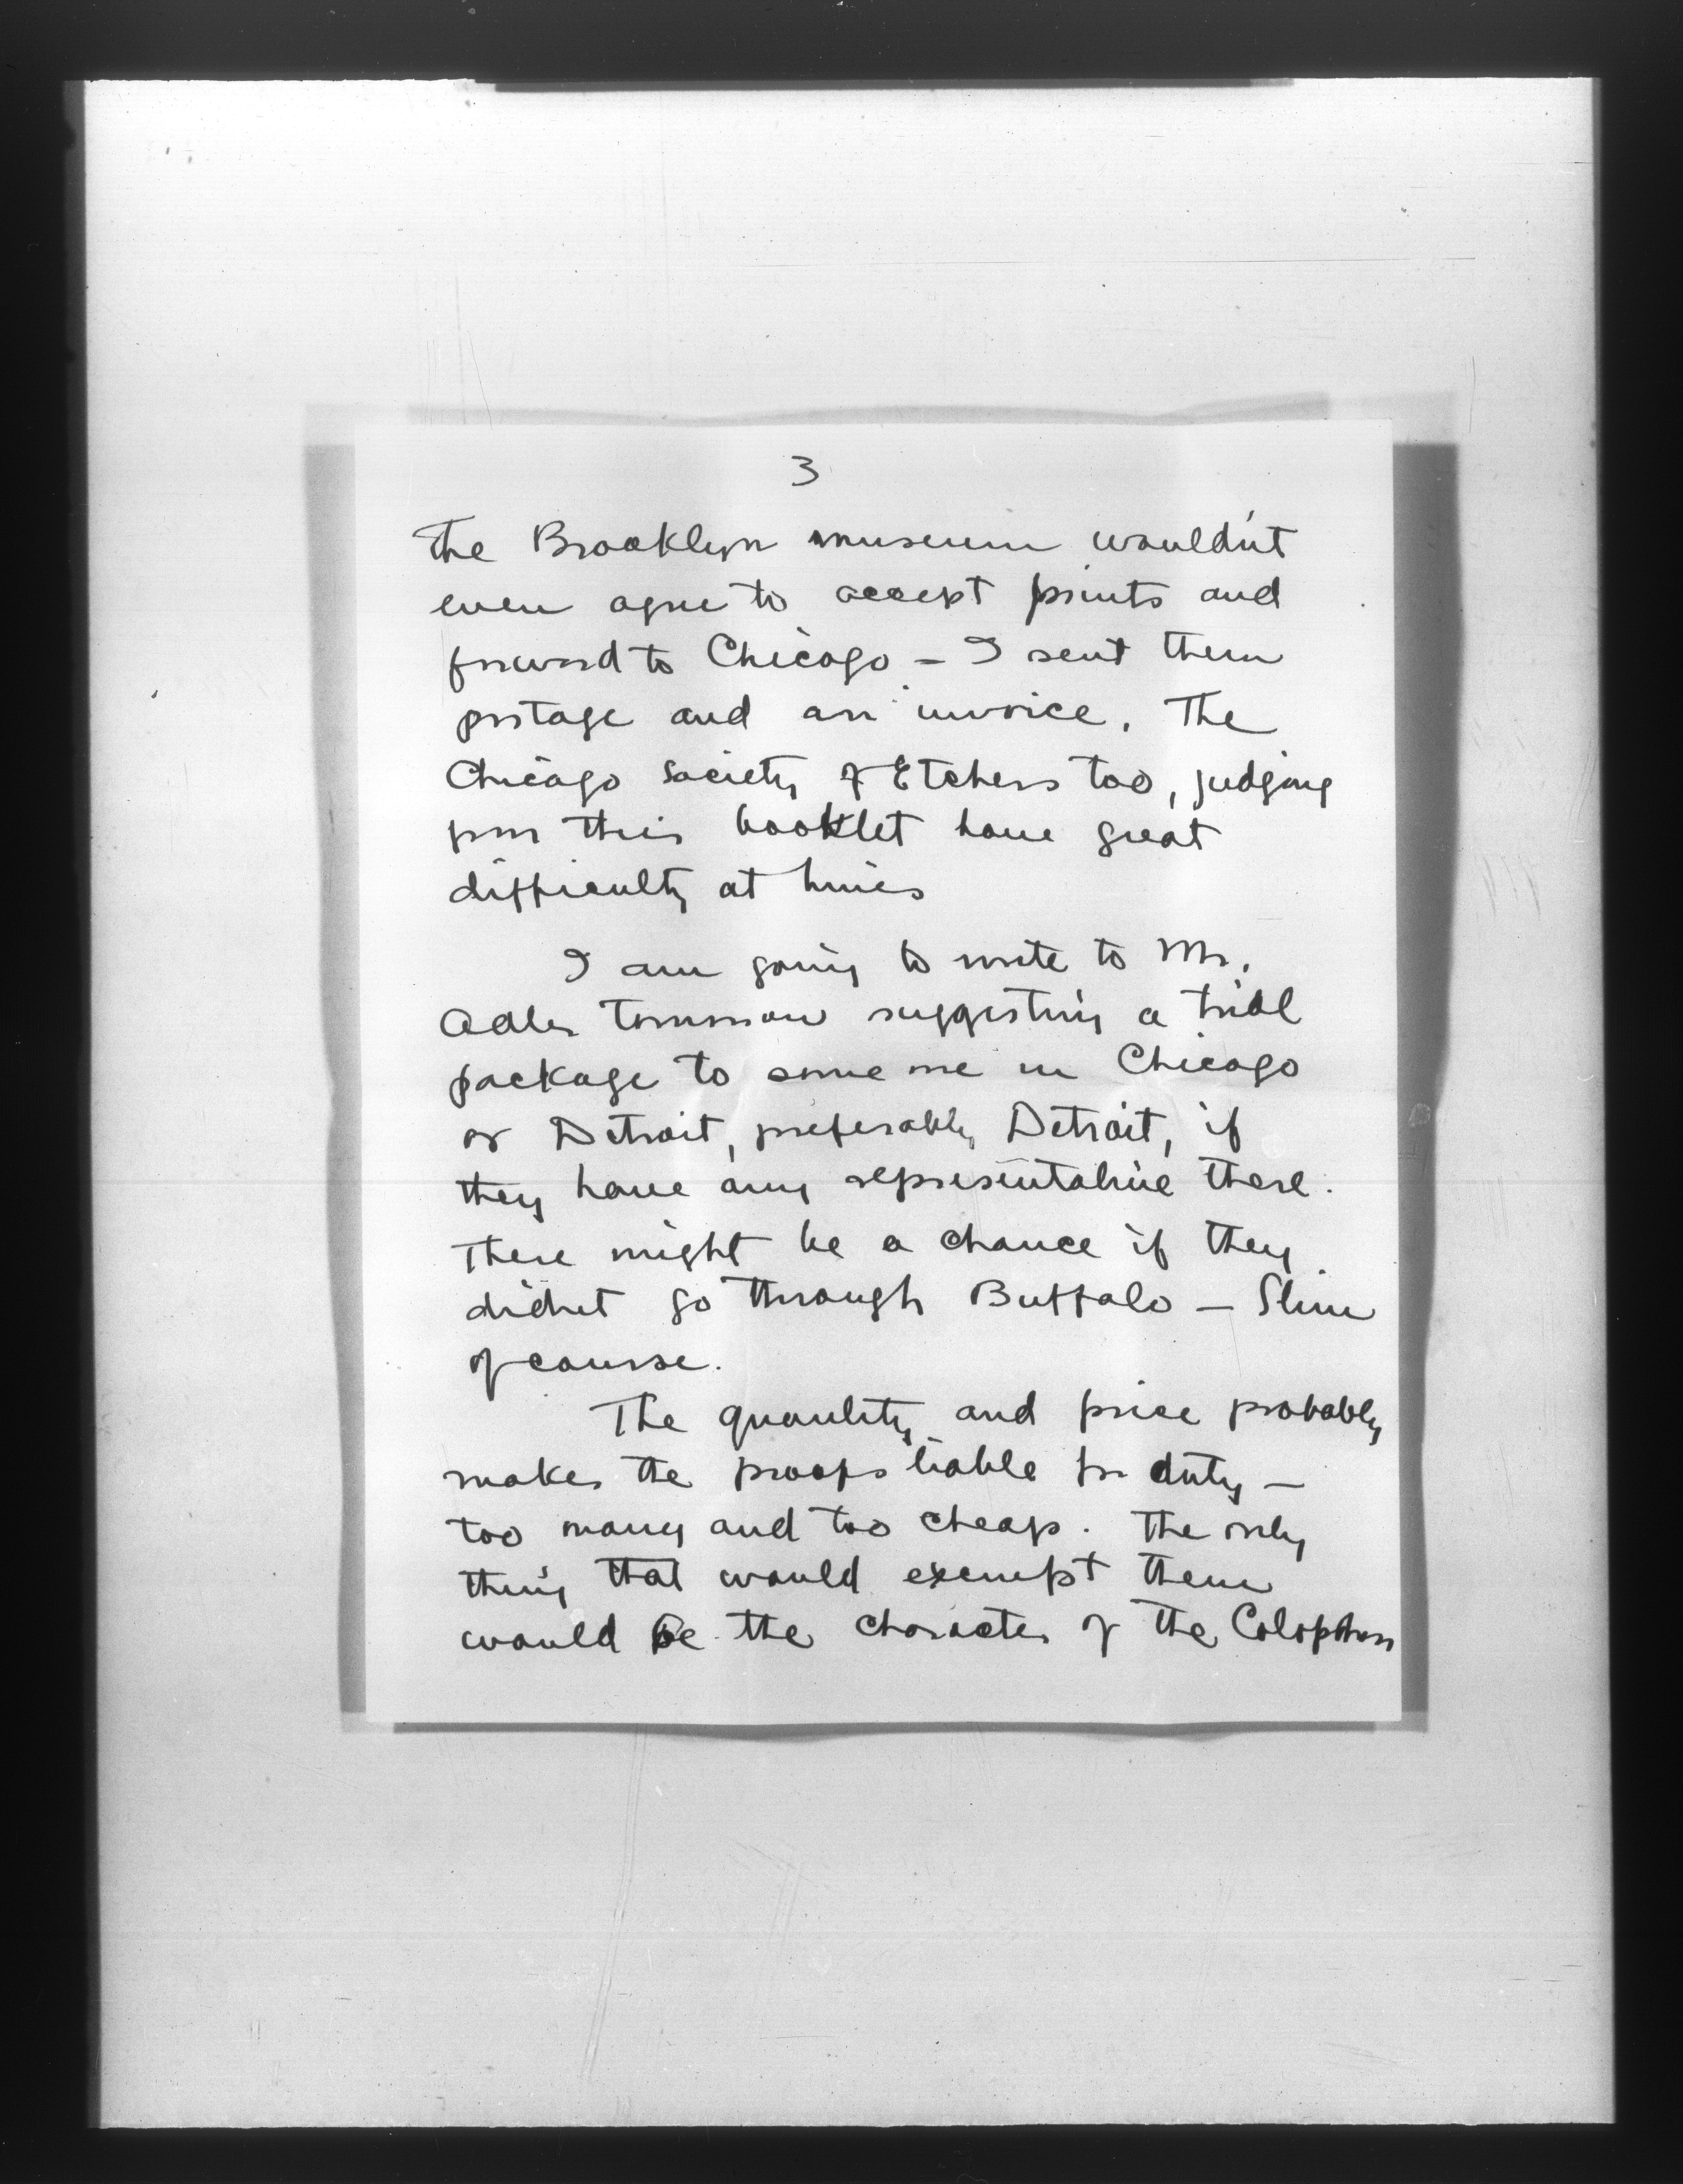 3
The Brooklyn museum wouldn't
even agree to accept prints and
forward to Chicago – I sent them
postage and an invoice. The
Chicago Society of Etchers too, judging
from their booklet have great
difficulty at times
I am going to write to Mr.
Adler tomorrow suggesting a trial
package to some one in Chicago
or Detroit, preferably Detroit, if
they have any representative there.
There might be a chance if they
didn't go through Buffalo – Slim
of course.
The quantity and price probably
makes the proofs liable for duty –
too many and too cheap. The only
thing that would exempt them
would be the character of the Colophon